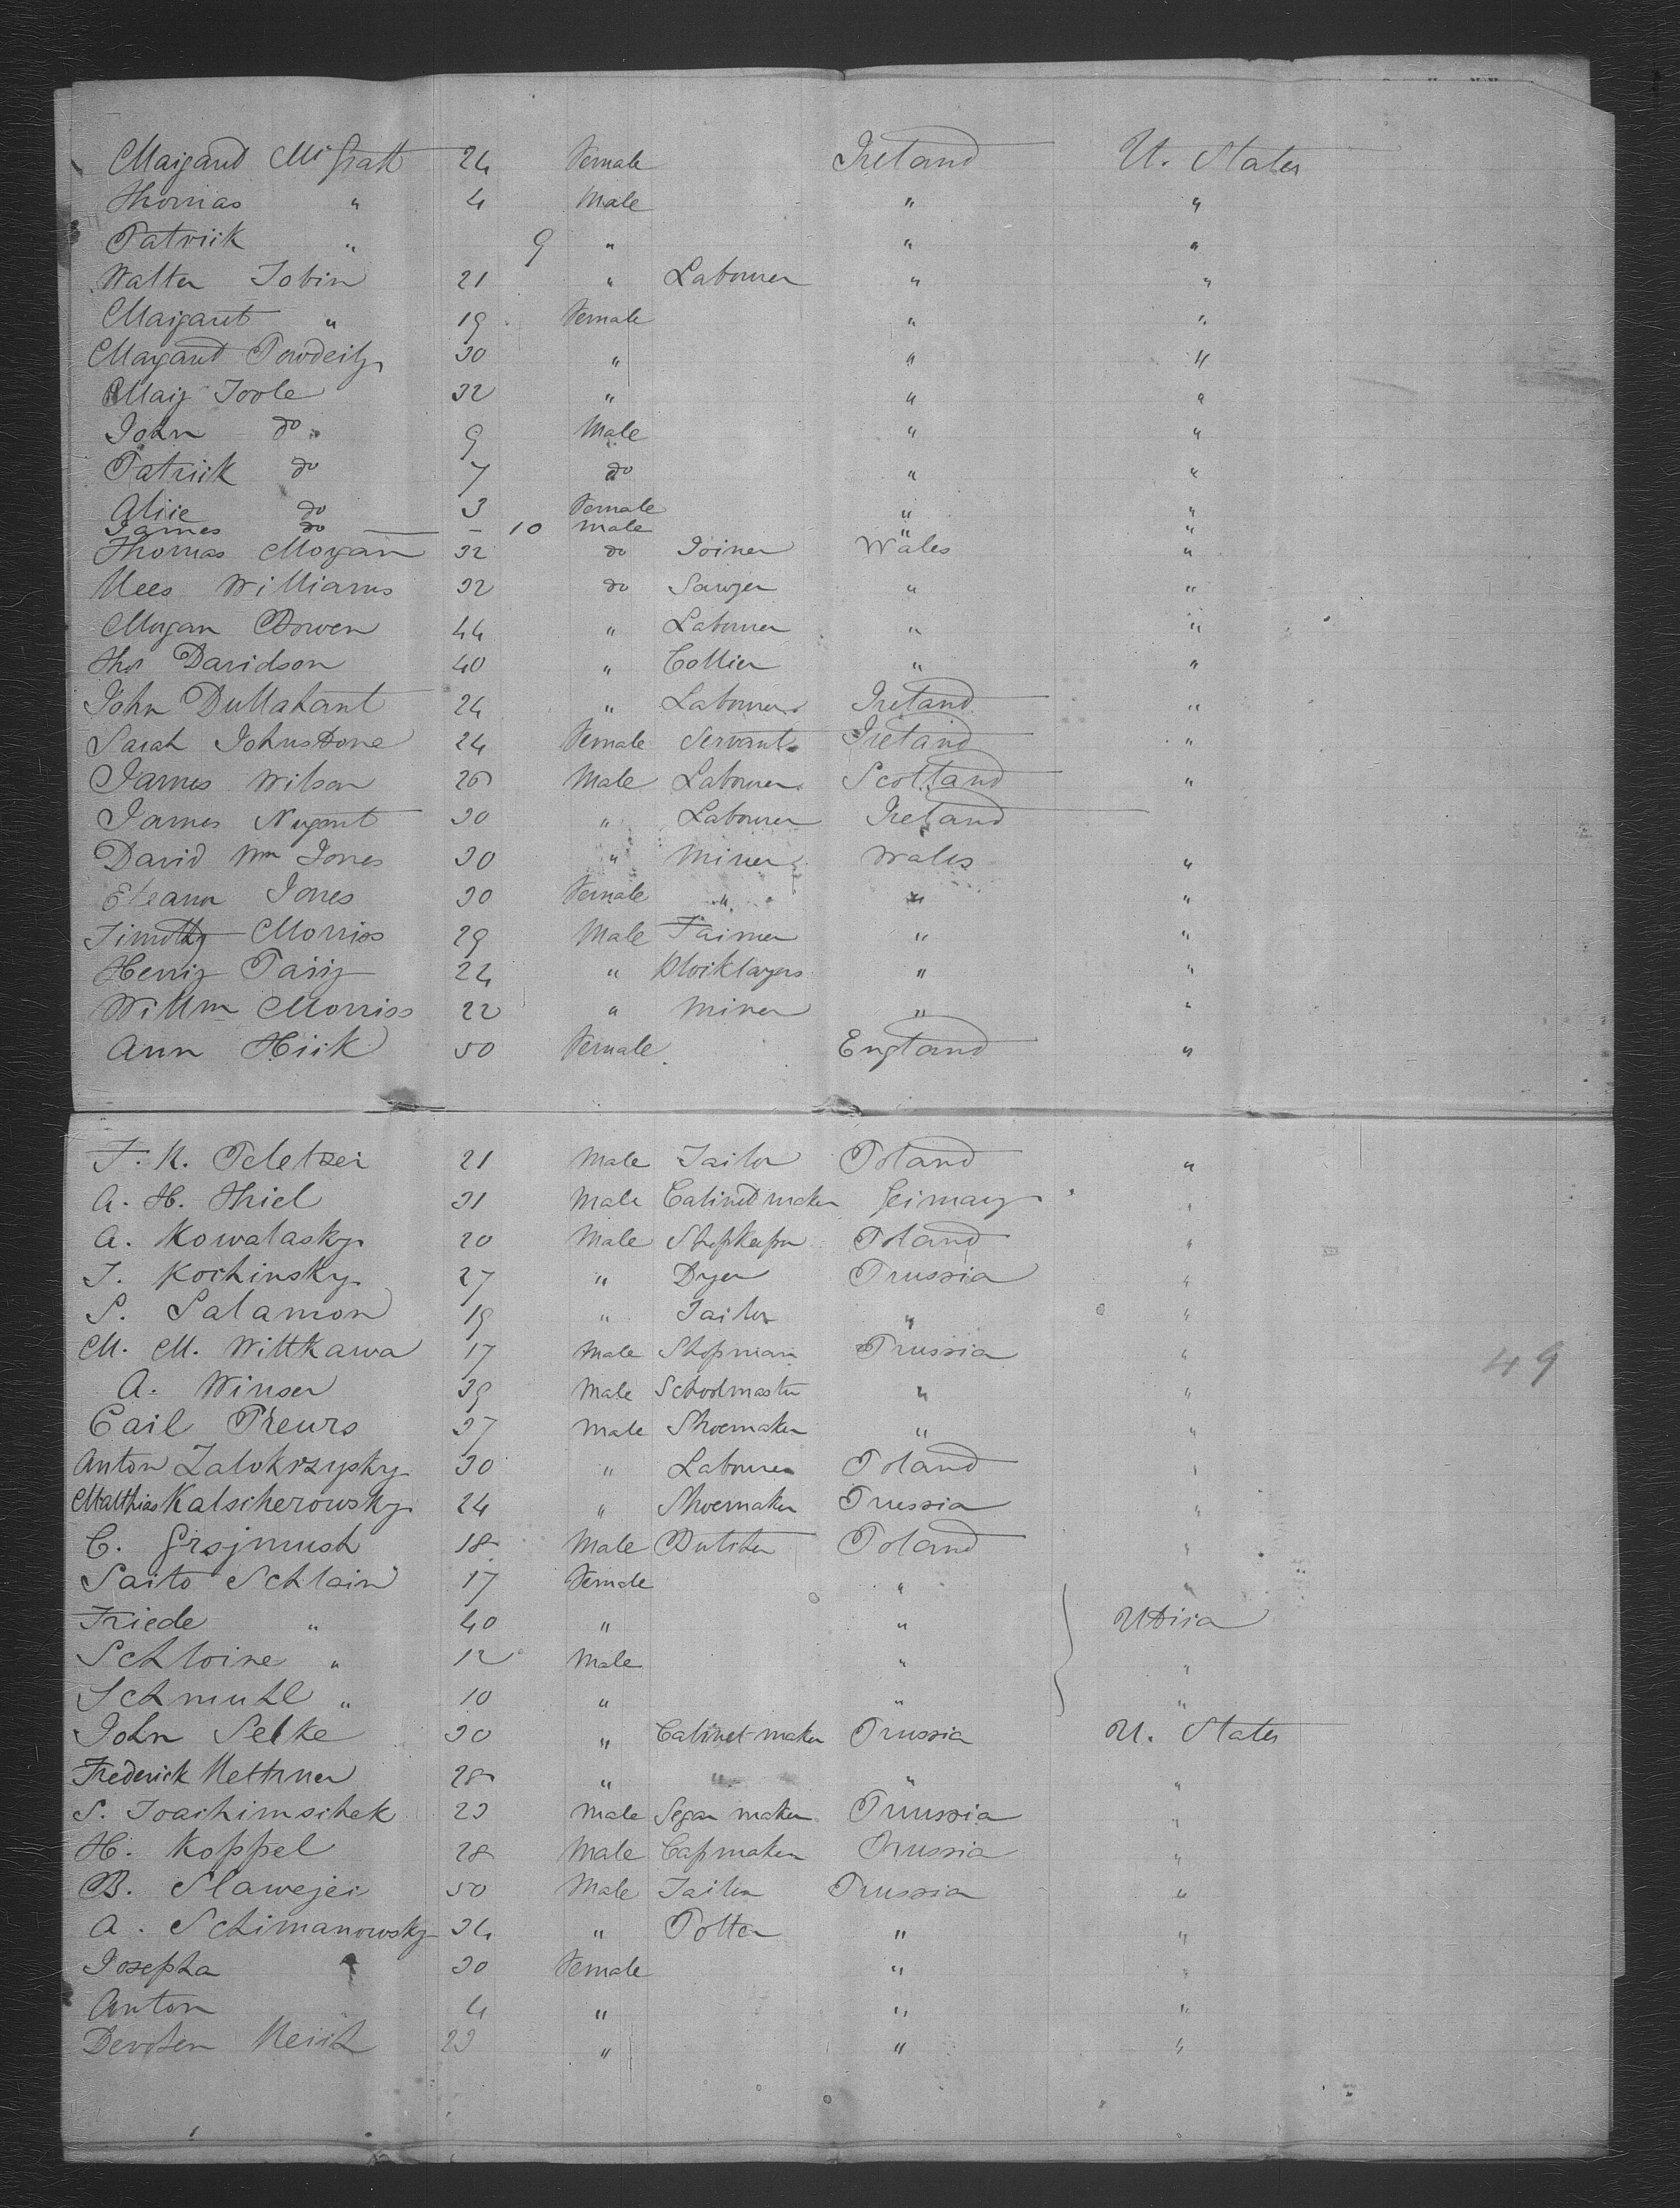 Margaret McGratt 24 Female Ireland U. States
Thomas " 4 Male " "
Patrick " 9 " " "
Walter Tobin 21 " Labourer " "
Margaret " 19 Female " "
Margaret Powderly 30 " " "
Mary Toole 32 " " "
John do 9 Male " "
Patrick do 7 do " "
Alice do 3 Female " "
James do — – 10 male " "
Thomas Morgan 32 do Joiner Wales "
Rees Williams 32 do Sawyer " "
Morgan Bowen 44 " Labourer " "
Thos Davidson 40 " Collier " "
John Dullahant 24 " Labourer Ireland "
Sarah Johnstone 24 Female Servant Ireland "
James Wilson 26 Male Labourer Scotland "
James Nugent 30 " Labourer Ireland
David Wm Jones 30 " Miner Wales "
Eleanor Jones 30 Female " " "
Timothy Morriss 29 Male Farmer " "
Henry Parry 24 " Bricklayers " "
Willm Morriss 22 " Miner " "
Ann Hick 50 Female England "
F. K. Peletzer 21 Male Tailor Poland "
A. H. Thiel 31 Male Cabinet maker Germany "
A. Kowalasky 20 Male Shopkeeper Poland "
J. Kochinsky 27 " Dyer Prussia "
S. Salamon 19 " Tailor " "
M. M. Wittkawa 17 Male Shopman Prussia "
49
A. Winser 39 Male Schoolmaster " "
Carl Preurs 37 Male Shoemaker " "
Anton Zalokrzysky 30 " Labourer Poland "
Matthias Kalscherowsky 24 " Shoemaker Prussia "
C. Grsjmush 18 Male Butcher Poland "
Saito Schlain 17 Female " "
Friede " 40 " " Utica
Schloine " 12 Male " "
Schmuhl " 10 " " "
John Selke 30 " Cabinet-maker Prussia U. States
Frederick Methner 28 " " " "
S. Joachimschek 23 Male Segar maker Prussia "
H. Koppel 28 Male Capmaker Prussia "
B. Slawejei 50 Male Tailor Prussia "
A. Schimanowsky 34 " Potter " "
Josepha " 30 Female " "
Anton 4 " " "
Reich 23 " " "